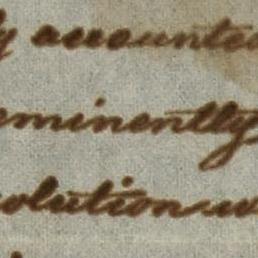 y accounted
eminently
solution